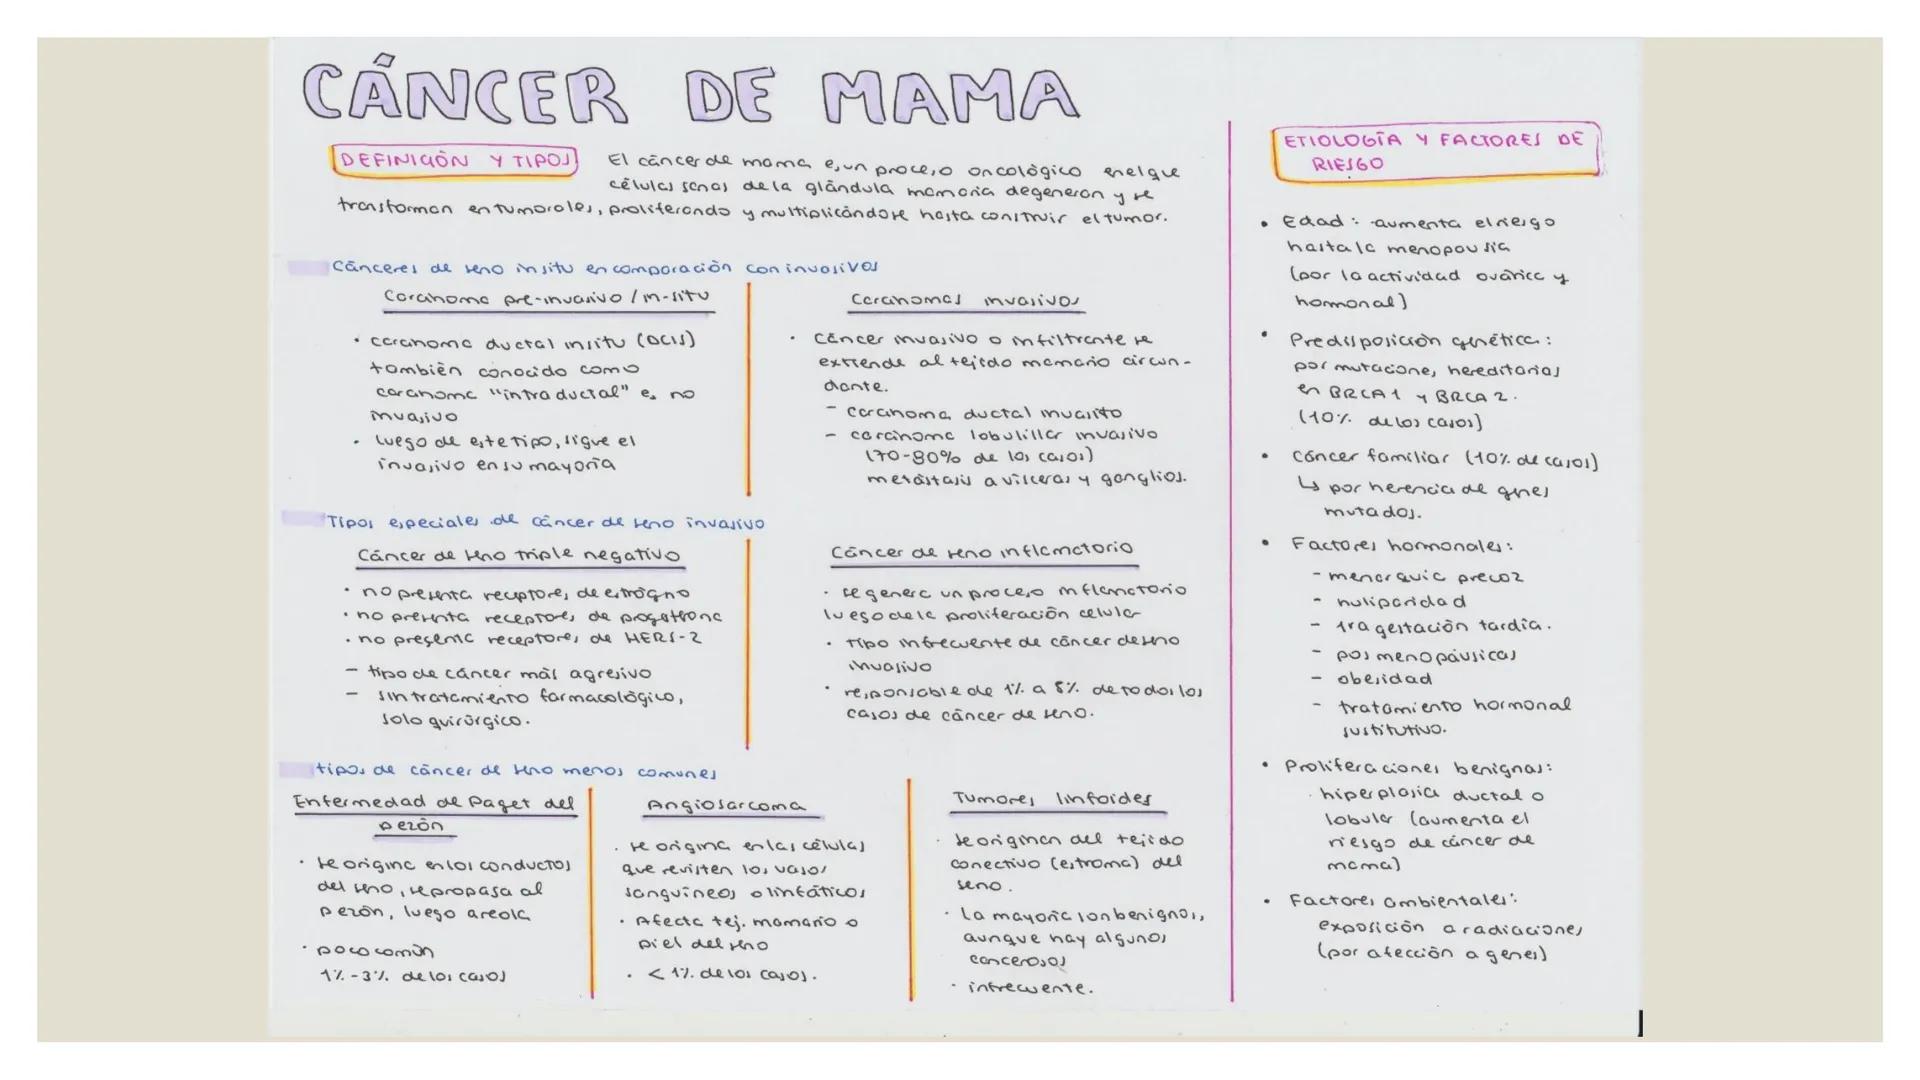 CÁNCER DE MAMA
DEFINICIÓN Y TIPOS
El cáncer de mama es un proceso oncológico en el que
células sanas de la glándula mamaria degeneran y se
transforman en tumorales, proliferando y multiplicándose hasta construir el tumor.
Cánceres de seno in situ en comparación con invasivos
Carcinoma pre-invasivo / in-situ
• carcinoma ductal insitu (DCIS)
también conocido como
carcinoma "intraductal" es no
invasivo
• luego de este tipo, sigue el
invasivo en su mayoría
Carcinomas invasivos
• Cáncer invasivo o infiltrante se
extiende al tejido mamario circun-
dante.
- carcinoma ductal invasito
- carcinoma lobulillar invasivo
(70-80% de los casos)
metástasis a vísceras y ganglios.
Tipos especiales de cáncer de seno invasivo
Cáncer de seno triple negativo
• no presenta receptores de estrógno
• no presenta receptores de progesterona
• no presenta receptores de HERS-2
- tipo de cáncer más agresivo
- sin tratamiento farmacológico,
solo quirúrgico.
Cáncer de seno inflamatorio
• se genera un proceso inflamatorio
luego de la proliferación celular
• Tipo infrecuente de cáncer de seno
invasivo
• responsable de 1% a 5% de todos los
casos de cáncer de seno.
tipos de cáncer de seno menos comunes
Enfermedad de Paget del
pezón
• se origina en los conductos
del seno, se propasa al
pezón, luego areola
• poco común
1%-3% de los casos
Angiosarcoma
• se origina en las células
que revisten los vasos
sanguíneos o linfáticos
• Afecta tej. mamario o
piel del seno
• < 1% de los casos.
Tumores linfoides
• se originan del tejido
conectivo (estroma) del
seno.
• La mayoría son benignos,
aunque hay algunos
cancerosos
• infrecuente.
ETIOLOGÍA Y FACTORES DE
RIESGO
• Edad: aumenta el riesgo
hasta la menopousia
(por la actividad ovárica y
hormonal)
• Predisposición genética:
por mutaciones hereditarias
en BRCA1 y BRCA2.
(10% de los casos)
• Cáncer familiar (10% de casos)
↳ por herencia de genes
mutados.
• Factores hormonales:
- menarquia precoz
- nuliparidad
- 1ra gestación tardía.
- posmenopáusicas
- obesidad
- tratamiento hormonal
sustitutivo.
• Proliferaciones benignas:
· hiperplasia ductal o
lobular (aumenta el
riesgo de cáncer de
mama)
• Factores ambientales:
exposición a radiaciones
(por afección a genes)